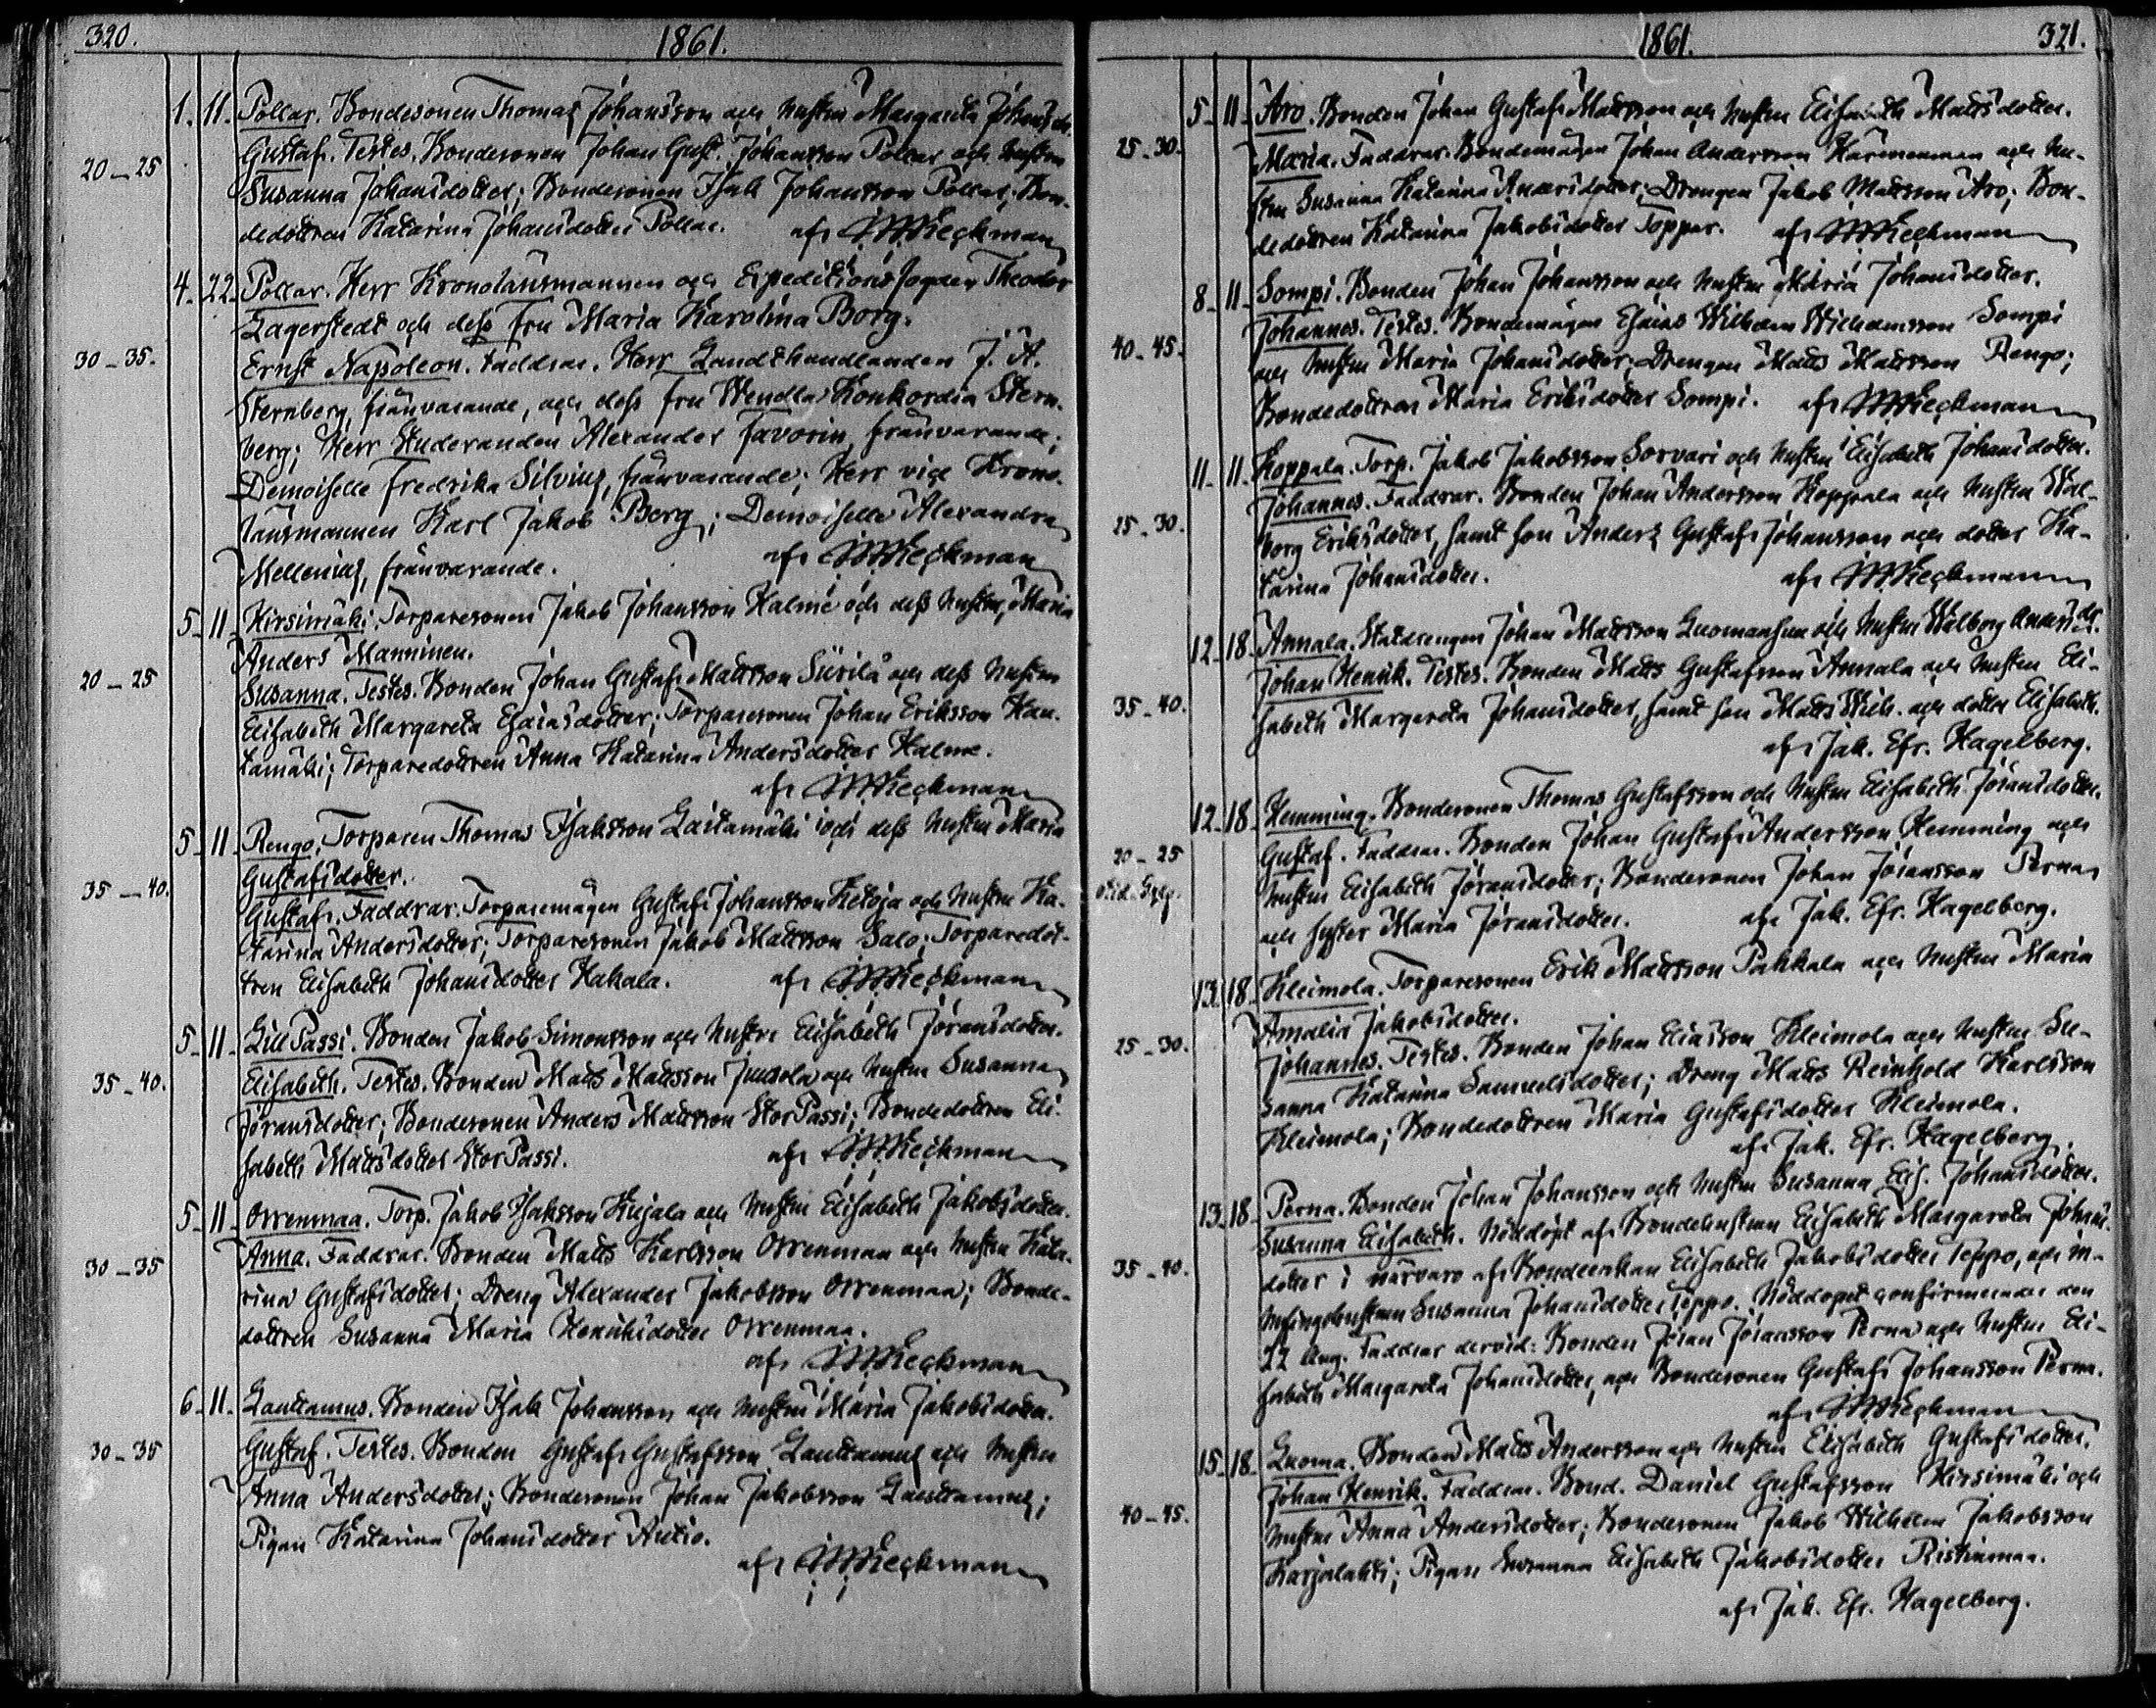 320.
1861.
1. 11. Pollar. Bondesonen Thomas Johansson och hustru Margareta Johansdr.
Gustaf. Testes. Bondesonen Johan Gust. Johansson Pollar och hustru
20–25
Susanna Johansdotter; Bondesonen Isak Johansson Pollar; Bon-
dedottren Katarina Johansdotter Pollar. af Keckman
4. 22. Pollar. Herr Kronolänsmannen och Expeditionsfogden Theodor
Lagerstedt och dess fru Maria Karolina Borg.
30–35.
Ernst Napoleon. Faddrar. Herr Landthandlanden J. A.
Sternberg, frånvarande, och dess fru Wendla Konkordia Stern-
berg; Herr Studeranden Alexander Favorin, frånvarande;
Demoiselle Fredrika Silvius, frånvarande; Herr vice Krono-
länsmannen Karl Jakob Berg; Demoiselle Alexandra
Mellenius, frånvarande. af Keckman
5. 11. Kirsimäki. Torparesonen Jakob Johansson Halme och dess hustru Maria
Anders Manninen.
20–25
Susanna. Testes. Bonden Johan Gustaf Mattsson Siirilä och dess hustru
Elisabeth Margareta Esaiasdotter; Torparesonen Johan Eriksson Kan-
tamäki; Torparedottren Anna Katarina Andersdotter Halme.
af Keckman
5. 11. Rengo. Torparen Thomas Isaksson Laitamäki och dess hustru Maria
Gustafsdotter.
35–40.
Gustaf. Faddrar. Torparemågen Gustaf Johansson Ketoja och hustru Ka-
tarina Andersdotter; Torparesonen Jakob Mattsson Salo; Torparedot-
tren Elisabeth Johansdotter Hakala. af Keckman
5. 11. Lill Passi. Bonden Jakob Simonsson och hustru Elisabeth Jöransdotter.
35–40.
Elisabeth. Testes. Bonden Matts Mattsson Jussola och hustru Susanna
Jöransdotter; Bondesonen Anders Mattsson Stor Passi; Bondedottren Eli-
sabeth Mattsdotter Stor Passi. af Keckman
5. 11. Orrenmaa. Torp. Jakob Isaksson Kujala och hustru Elisabeth Jakobsdotter.
30–35
Anna. Faddrar. Bonden Matts Karlsson Orrenmaa och hustru Kata-
rina Gustafsdotter; Dreng Alexander Jakobsson Orrenmaa; Bonde-
dottren Susanna Maria Henriksdotter Orrenmaa.
af Keckman
6. 11. Lautamus. Bonden Isak Johansson och hustru Maria Jakobsdotter.
30–35
Gustaf. Testes. Bonden Gustaf Gustafsson Lautamus och hustru
Anna Andersdotter; Bondesonen Johan Jakobsson Lautamus;
Pigan Katarina Johansdotter Autio.
af Keckman
1861.
321.
5. 11. Aro. Bonden Johan Gustaf Mattsson och hustru Elisabeth Mattsdotter.
25–30.
Maria. Faddrar. Bondemågen Johan Andersson Harmenmaa och hu-
stru Susanna Katarina Andersdotter; Drengen Jakob Mattsson Aro; Bon-
dedottren Katarina Jakobsdotter Toppar. af Keckman
8. 11. Sompi. Bonden Johan Johansson och hustru Maria Johansdotter.
Johannes. Testes. Bondemågen Esaias Wilhelm Wilhelmsson Sompi
40–45.
och hustru Maria Johansdotter; Drengen Matts Mattsson Rengo;
Bondedottren Maria Eriksdotter Sompi. af Keckman
11. 11. Koppala. Torp. Jakob Jakobsson Sorvari och hustru Elisabeth Johansdotter.
Johannes. Faddrar. Bonden Johan Andersson Koppala och hustru Wal-
25–30.
borg Eriksdotter, samt son Anders Gustaf Johansson och dotter Ka-
tarina Johansdotter. af Keckman
12. 18. Annala. Statdrengen Johan Mattsson Luomansuu och hustru Walborg Andersdr.
Johan Henrik. Testes. Bonden Matts Gustafsson Annala och hustru Eli-
35–40.
sabeth Margareta Johansdotter, samt son Matts Wilh. och dotter Elisabeth.
af Jak. Efr. Hagelberg.
12. 18. Hemming. Bondesonen Thomas Gustafsson och hustru Elisabeth Jöransdotter.
20–25
Gustaf. Faddrar. Bonden Johan Gustaf Andersson Hemming och
hustru Elisabeth Jöransdotter; Bondesonen Johan Jöransson Perna
och syster Maria Jöransdotter. af Jak. Efr. Hagelberg.
13. 18. Kleimola. Torparesonen Erik Mattsson Pakkala och hustru Maria
Amalia Jakobsdotter.
25–30.
Johannes. Testes. Bonden Johan Eliasson Kleimola och hustru Su-
sanna Katarina Samuelsdotter; Dreng Matts Reinhold Karlsson
Kleimola; Bondedottren Maria Gustafsdotter Kleimola.
af Jak. Efr. Hagelberg.
13. 18. Perna. Bonden Johan Johansson och hustru Susanna Elis. Johansdotter.
Susanna Elisabeth. Nöddöpt af Bondehustrun Elisabeth Margareta Johans-
35–40.
dotter i närvaro af Bondeenkan Elisabeth Jakobsdotter Teppo, och in-
hysingshustrun Susanna Johansdotter Teppo. Nöddopet confirmerades den
22 Aug. Faddrar dervid: Bonden Jöran Jöransson Perna och hustru Eli-
sabeth Margareta Johansdotter, och Bondesonen Gustaf Johansson Perna.
af Keckman
15. 18. Luoma. Bonden Matts Andersson och hustru Elisabeth Gustafsdotter.
Johan Henrik. Faddrar. Bond. Daniel Gustafsson Kirsimäki och
40–45.
hustru Anna Andersdotter; Bondesonen Jakob Wilhelm Jakobsson
Karjalahti; Pigan Susanna Elisabeth Jakobsdotter Ristinmaa.
af Jak. Efr. Hagelberg.